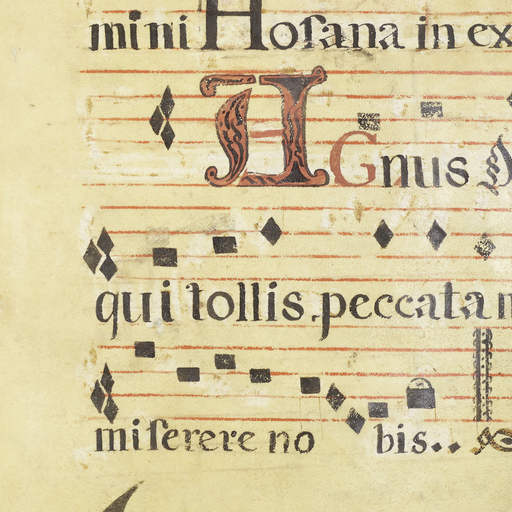 mini Hoſana in ex
AGnus
qui tollis.peccata
miſerere no bis..